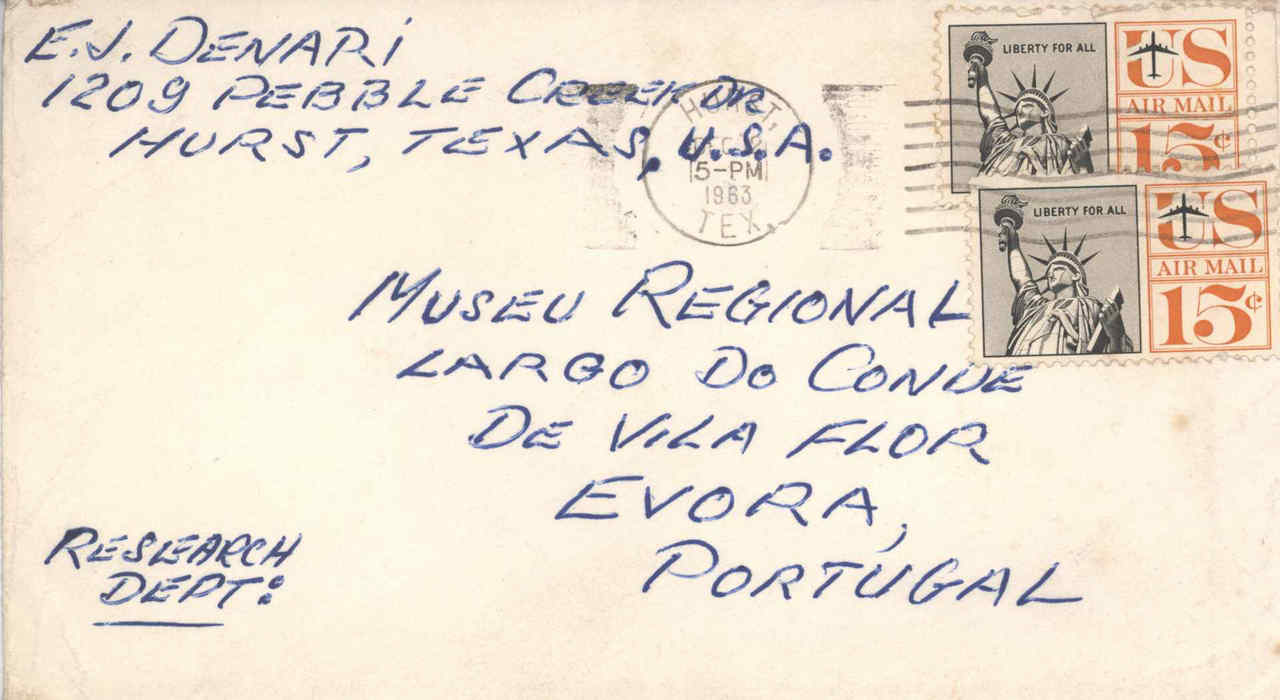 E.J. DENARI
1209 PEBBLE CREEK DR
HURST, TEXAS, U.S.A.
HURST,
5-PM
1963
TEX.
LIBERTY FOR ALL
US
AIR MAIL
15¢
LIBERTY FOR ALL
US
AIR MAIL
15¢
MUSEU REGIONAL
LARGO DO CONDE
DE VILA FLOR
EVORA,
PORTUGAL
RESEARCH
DEPT: